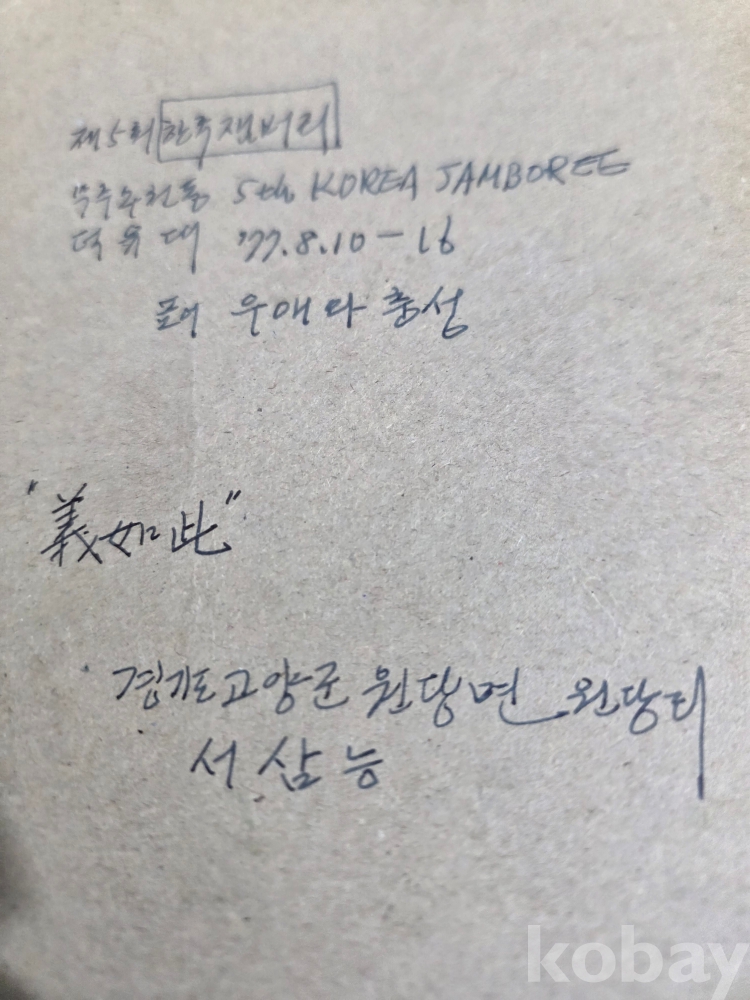 제5회 한국잼버리
무주구천동 5th KOREA JAMBOREE
덕유대 '77.8.10-16
우애와 충성
"義如此"
경기도 고양군 원당면 원당리
서삼능
kobay